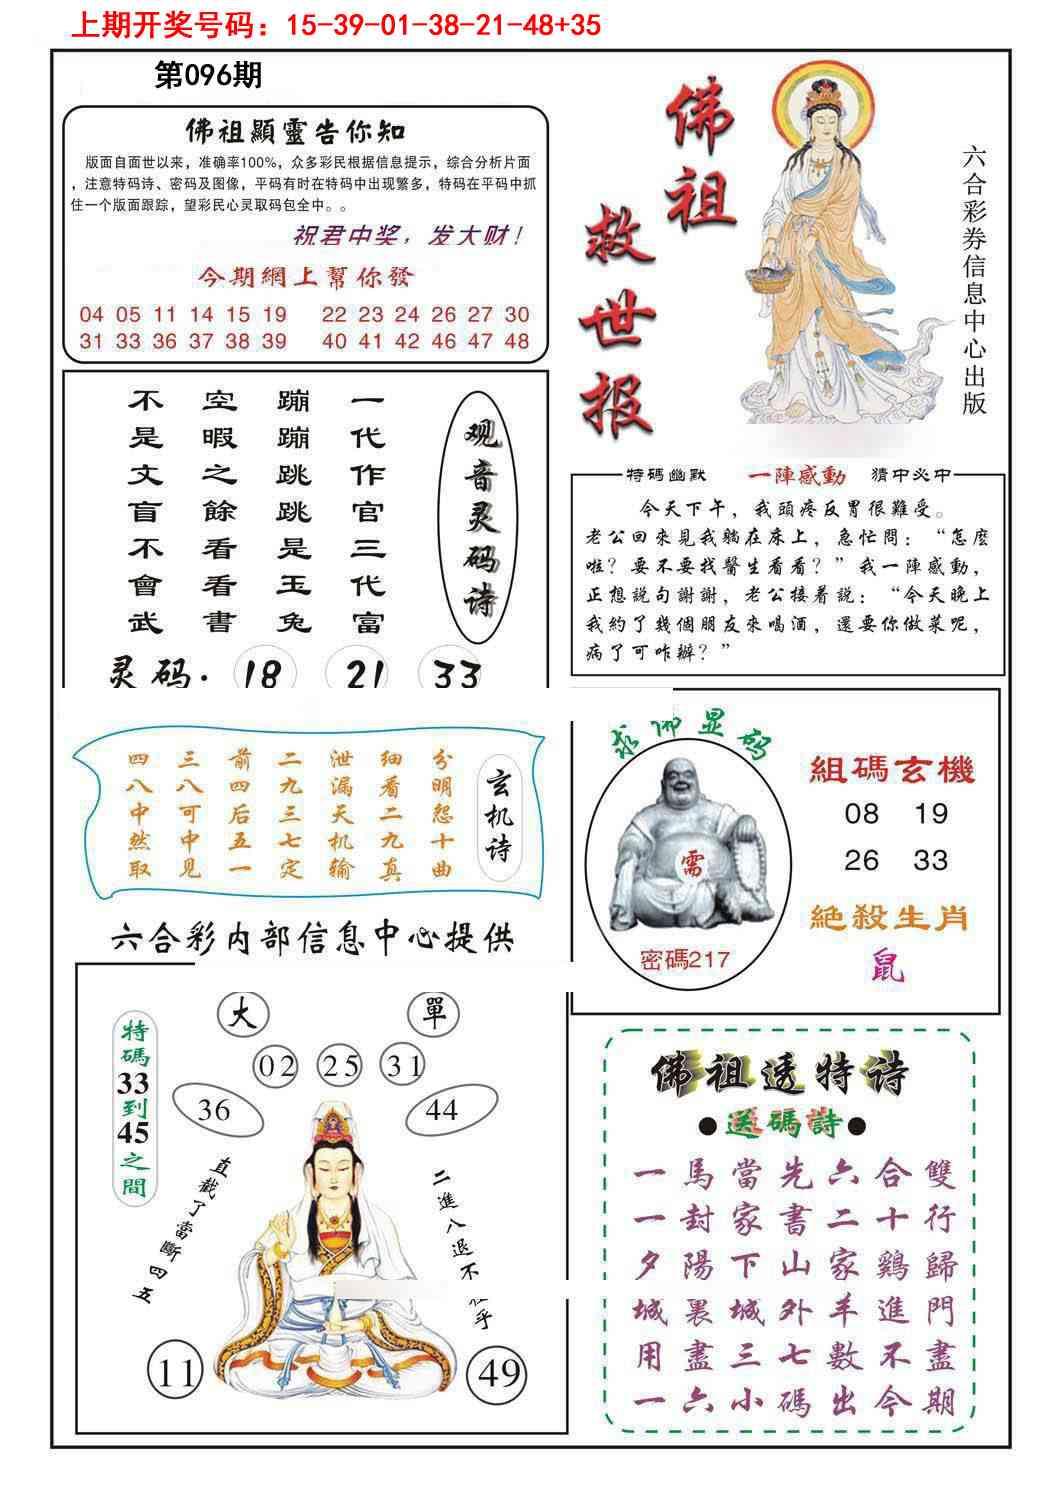 上期开奖号码：15-39-01-38-21-48+35
第096期
佛祖顯靈告你知
版面自面世以来，准确率100%，众多彩民根据信息提示，综合分析片面
，注意特码诗、密码及图像，平码有时在特码中出现繁多，特码在平码中抓
住一个版面跟踪，望彩民心灵取码包全中。。
祝君中奖，发大财！
今期網上幫你發
04 05 11 14 15 19 22 23 24 26 27 30
31 33 36 37 38 39 40 41 42 46 47 48
佛祖
救世报
六合彩券信息中心出版
观音灵码诗
一代作官三代富
蹦蹦跳跳是玉兔
空暇之餘看看書
不是文盲不會武
灵码. 18 21 33
特碼幽默 一陣感動 猜中必中
今天下午，我頭疼反胃很難受。
老公回來見我躺在床上，急忙問：“怎麼
啦？要不要找醫生看看？”我一陣感動，
正想説句謝謝，老公接着説：“今天晚上
我約了幾個朋友來喝酒，還要你做菜呢，
病了可咋辦？”
玄机诗
分明怨十曲
细看二九真
泄漏天机输
二九三七定
前四后五一
三八可中见
四八中然取
求佛显码
需
密碼217
組碼玄機
08 19
26 33
絕殺生肖
鼠
六合彩内部信息中心提供
特碼33到45之間
大 單
02 25 31
36 44
直截了當斷四五
二進八退不在乎
11 49
佛祖透特诗
●送碼詩●
一馬當先六合雙
一封家書二十行
夕陽下山家鷄歸
城裏城外羊進門
用盡三七數不盡
一六小碼出今期